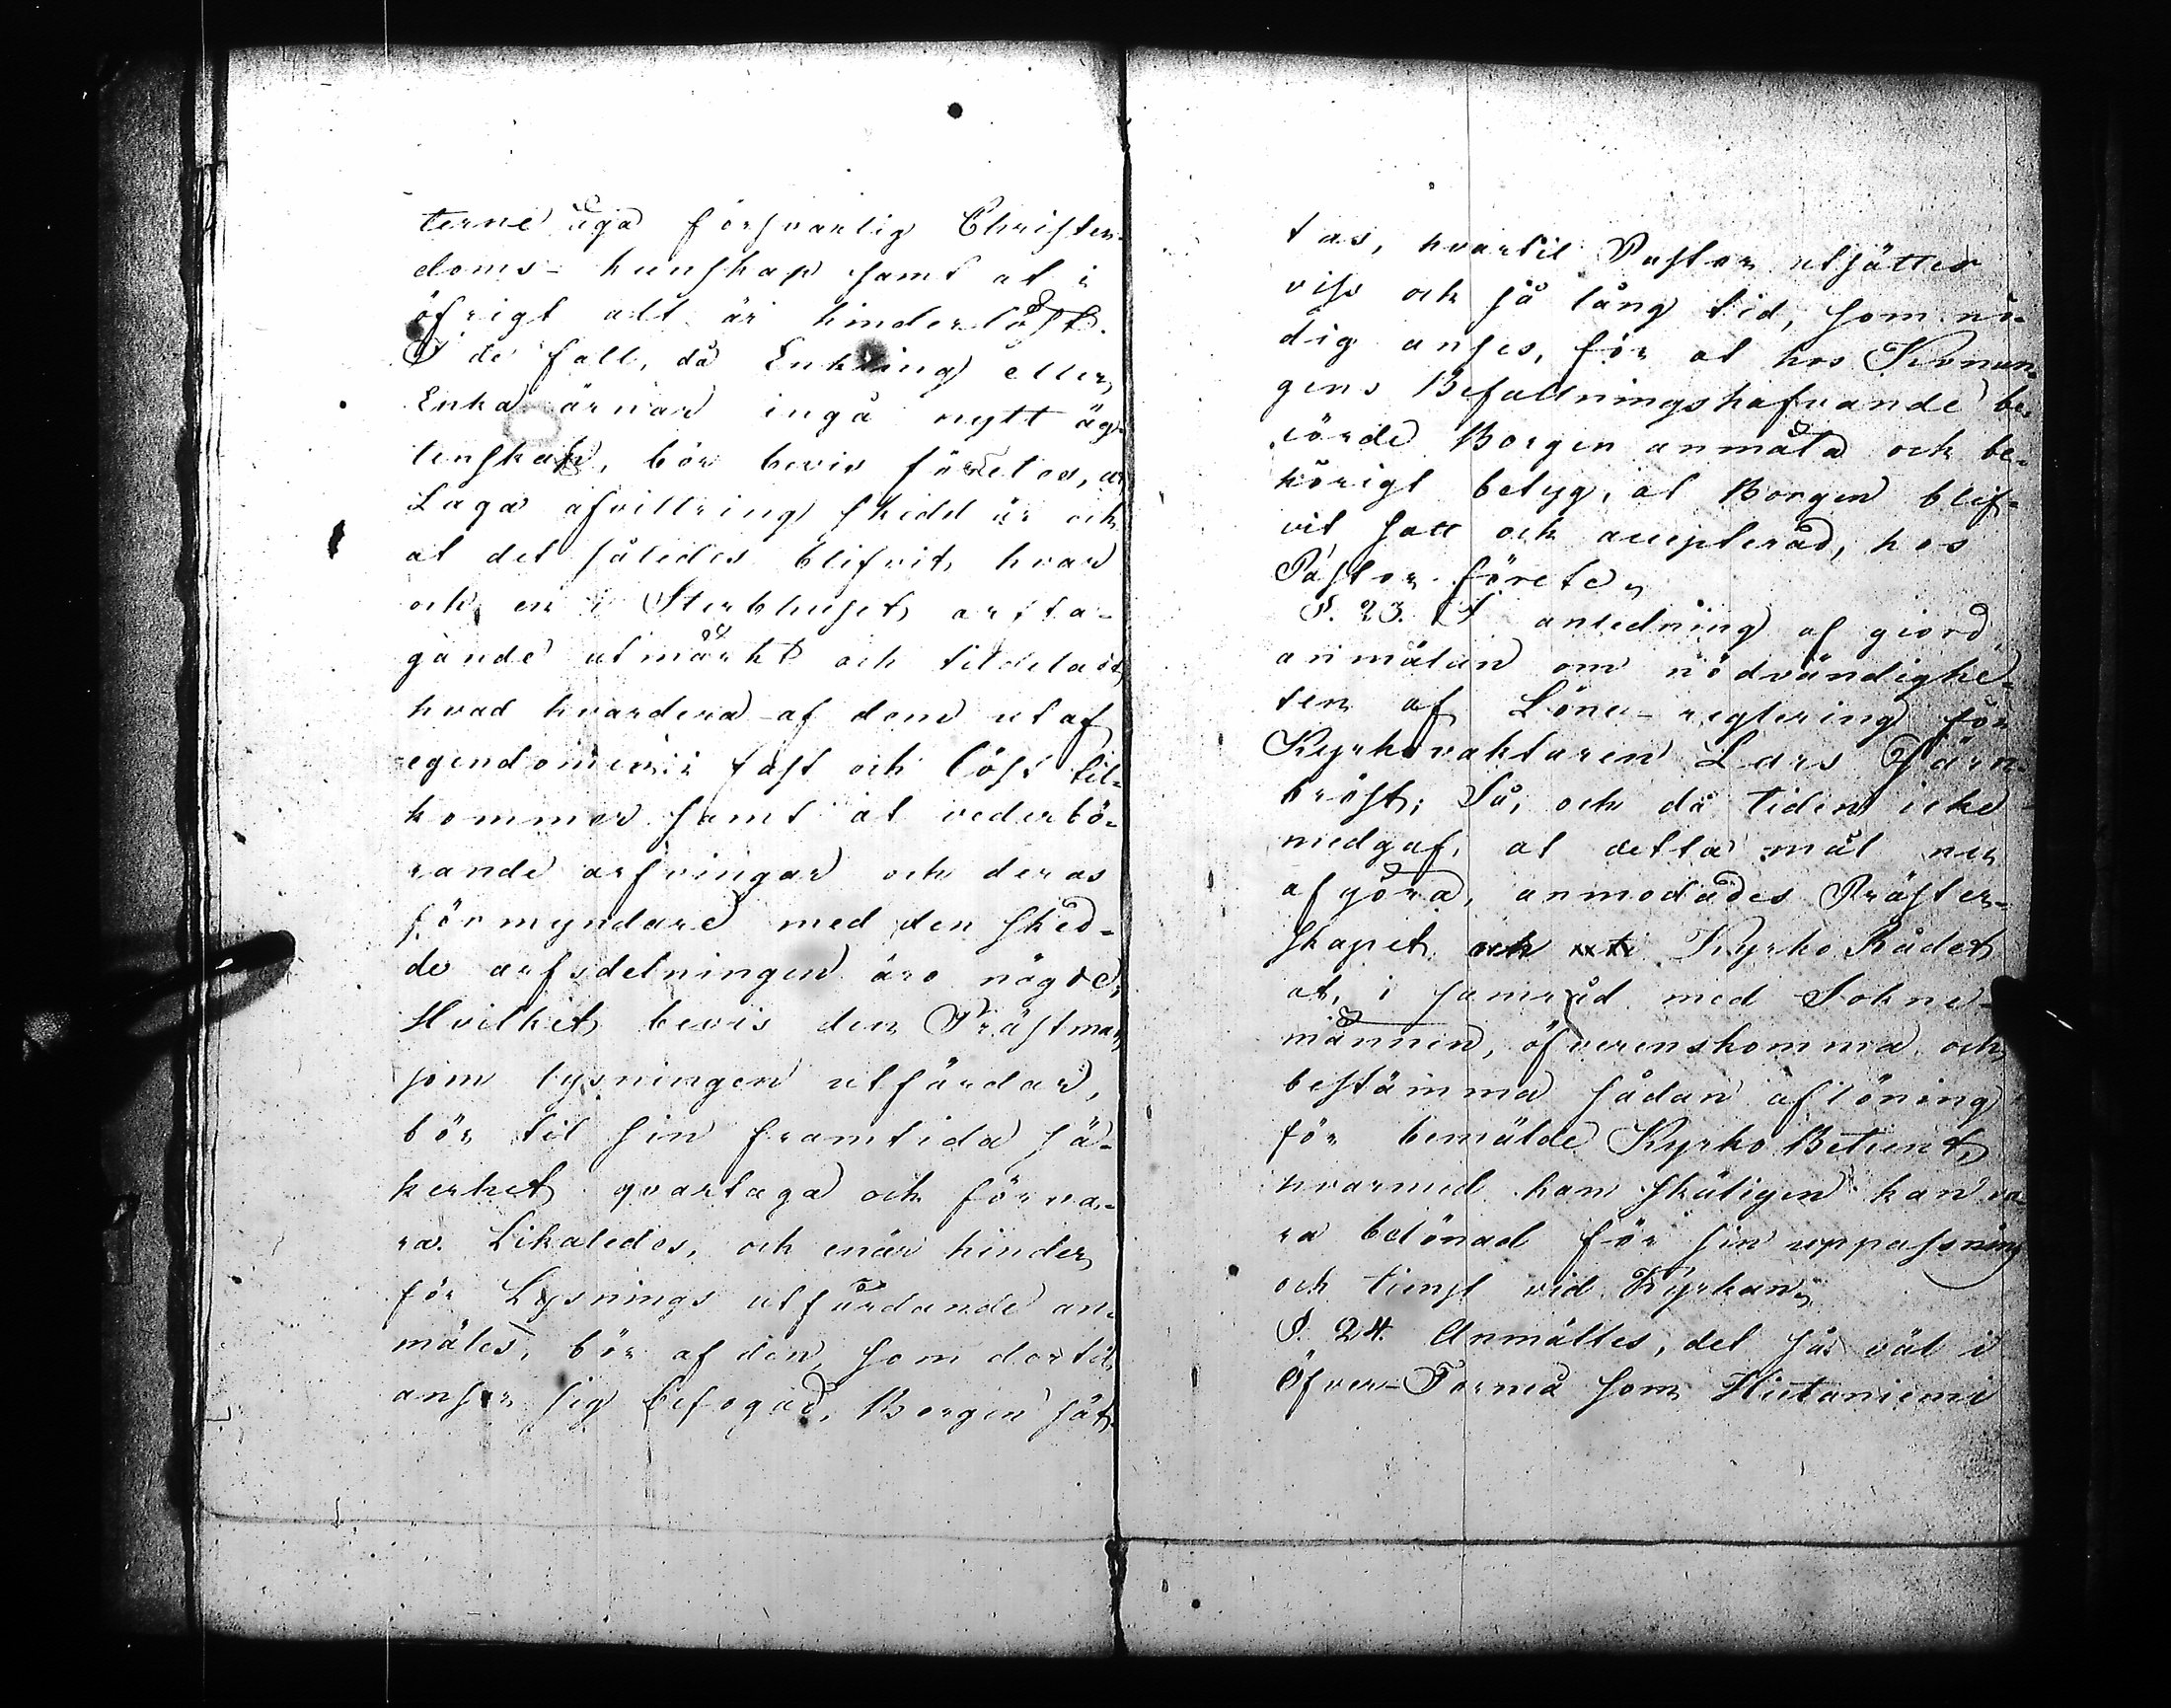 terne äga försvarlig Christen-
doms- kunskap samt at i
öfrigt alt är hinderlöst.
I de fall, då Enkling eller
Enka ärnar ingå nytt äg-
tenskap, bör bevis företes, at
Laga afvittring skedd är och
at det således blifvit, hvar
och en i Sterbhuset arfta-
gande utmärkt och tildelad
hvad hvardera af dem utaf
egendomen i fast och löst til-
kommer samt at vederbö-
rande arfvingar och deras
förmyndare med den sked-
de arfsdelningen äro nögde,
Hvilket bevis den Prästman
som lysningen utfärdar,
bör til sin framtida sä-
kerhet qvartaga och förva-
ra. Likaledes, och enär hinder
för Lysnings utfärdande an-
mäles, bör af den, som dertil
anser sig befogad, Borgen sät-
tas, hvartil Pastor utsätter
viss och så lång tid, som nö-
dig anses, för at hos Konun-
gens Befallningshafvande be-
rörde Borgen anmäla och be-
hörigt betyg, at Borgen blif-
vit satt och accepterad, hos
Pastor förete.
§. 23. I anledning af giord
anmälan om nödvändighe-
ten af Löne-reglering för
Kyrkovaktaren Lars Järn-
bröst; Så, och då tiden icke
medgaf, at detta mål nu
afgöra, anmodades Präster-
skapet och Kyrko Rådet
at, i samråd med Sokne-
männen, öfverenskomma och
bestämma sådan aflöning
för bemälde Kyrko Betient,
hvarmed han skäligen kan va-
ra belönad för sin uppassning
och tienst vid Kyrkan.
§. 24. Anmältes, det så väl i
Öfver-Torneå som Hietaniemi